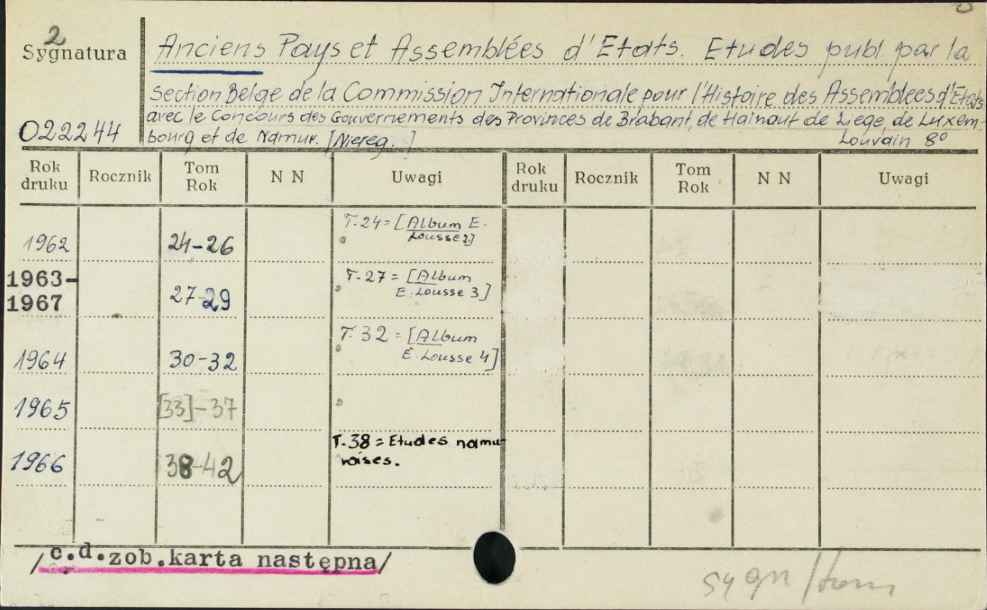 2
Sygnatura
Anciens Pays et Assemblées d'Etats. Etudes publ. par la
section Belge de la Commission Internationale pour l'Histoire des Assemblees d'Etats
avec le Concours des Gouvernements des Provinces de Brabant, de Hainaut de Liege de Luxem-
022244 bourg et de Namur. [Niereg.] Louvain 8°
Rok druku Rocznik Tom Rok N N Uwagi Rok druku Rocznik Tom Rok N N Uwagi
1962 24-26 T. 24 = [Album E.
Lousse 2]
1963-
1967 27-29 T. 27 = [Album
E. Lousse 3]
1964 30-32 T. 32 = [Album
E. Lousse 4]
1965 [33]-37
1966 38-42 T. 38 = Etudes namu-
roises.
/c.d.zob.karta następna/
sygn/